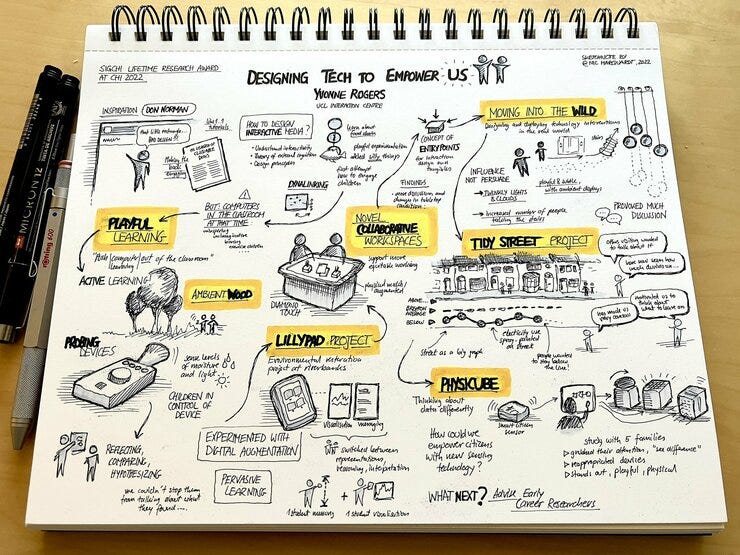 SIGCHI LIFETIME RESEARCH AWARD
AT CHI 2022
DESIGNING TECH TO EMPOWER US
YVONNE ROGERS
UCL INTERACTION CENTRE
SKETCHNOTE BY
@NIC MARQUARDT, 2022
INSPIRATION DON NORMAN
HOW TO DESIGN
INTERACTIVE MEDIA?
• Understand interactivity
• Theory of external cognition
• Design principles
learn about
food chains
playful experimentation
added silly things
first attempt
how to engage
children
CONCEPT OF
ENTRYPOINTS
for interaction
design and
tangibles
MOVING INTO THE WILD
Designing and deploying technology interventions
in the real world
stairs
INFLUENCE
NOT PERSUADE
playful & subtle
with ambient displays
→ TWINKLY LIGHTS
& CLOUDS
→ Increased number of people
taking the stairs
PROVOKED MUCH
DISCUSSION
DYNALINKING
BUT: COMPUTERS
IN THE CLASSROOM
AT THAT TIME
FINDINGS
PLAYFUL
LEARNING
"Make computers out of the classroom"
ACTIVE LEARNING!
NOVEL
COLLABORATIVE
WORKSPACES
support more
equitable working
physical world/
augmented
DIAMOND
TOUCH
TIDY STREET PROJECT
ABOVE
BRIGHTON
AVERAGE
BELOW
electricity use
spray-painted
on street
street as a big graph
people wanted
to stay below
the line!
motivated us to
think about
what to leave on
AMBIENT WOOD
PROBING
DEVICES
sense levels
of moisture
and light
CHILDREN IN
CONTROL OF
DEVICE
REFLECTING,
COMPARING,
HYPOTHESIZING
we couldn't stop them
from talking about what
they found....
LILLYPAD PROJECT
Environmental restoration
project at riverbanks
visualisation
messaging
EXPERIMENTED WITH
DIGITAL AUGMENTATION
switched between
representations,
reasoning, interpretation
PERVASIVE
LEARNING
1 student measuring
+
1 student visualisations
PHYSIKUBE
Thinking about
data differently
smart citizen
sensor
How could we
empower citizens
with new sensing
technology?
study with 5 families
▷ grabbed their attention, "see difference"
▷ reappropriated devices
▷ stands out, playful, physical
WHAT NEXT? Advise Early
Career Researchers
MICRON 12
rotring 600